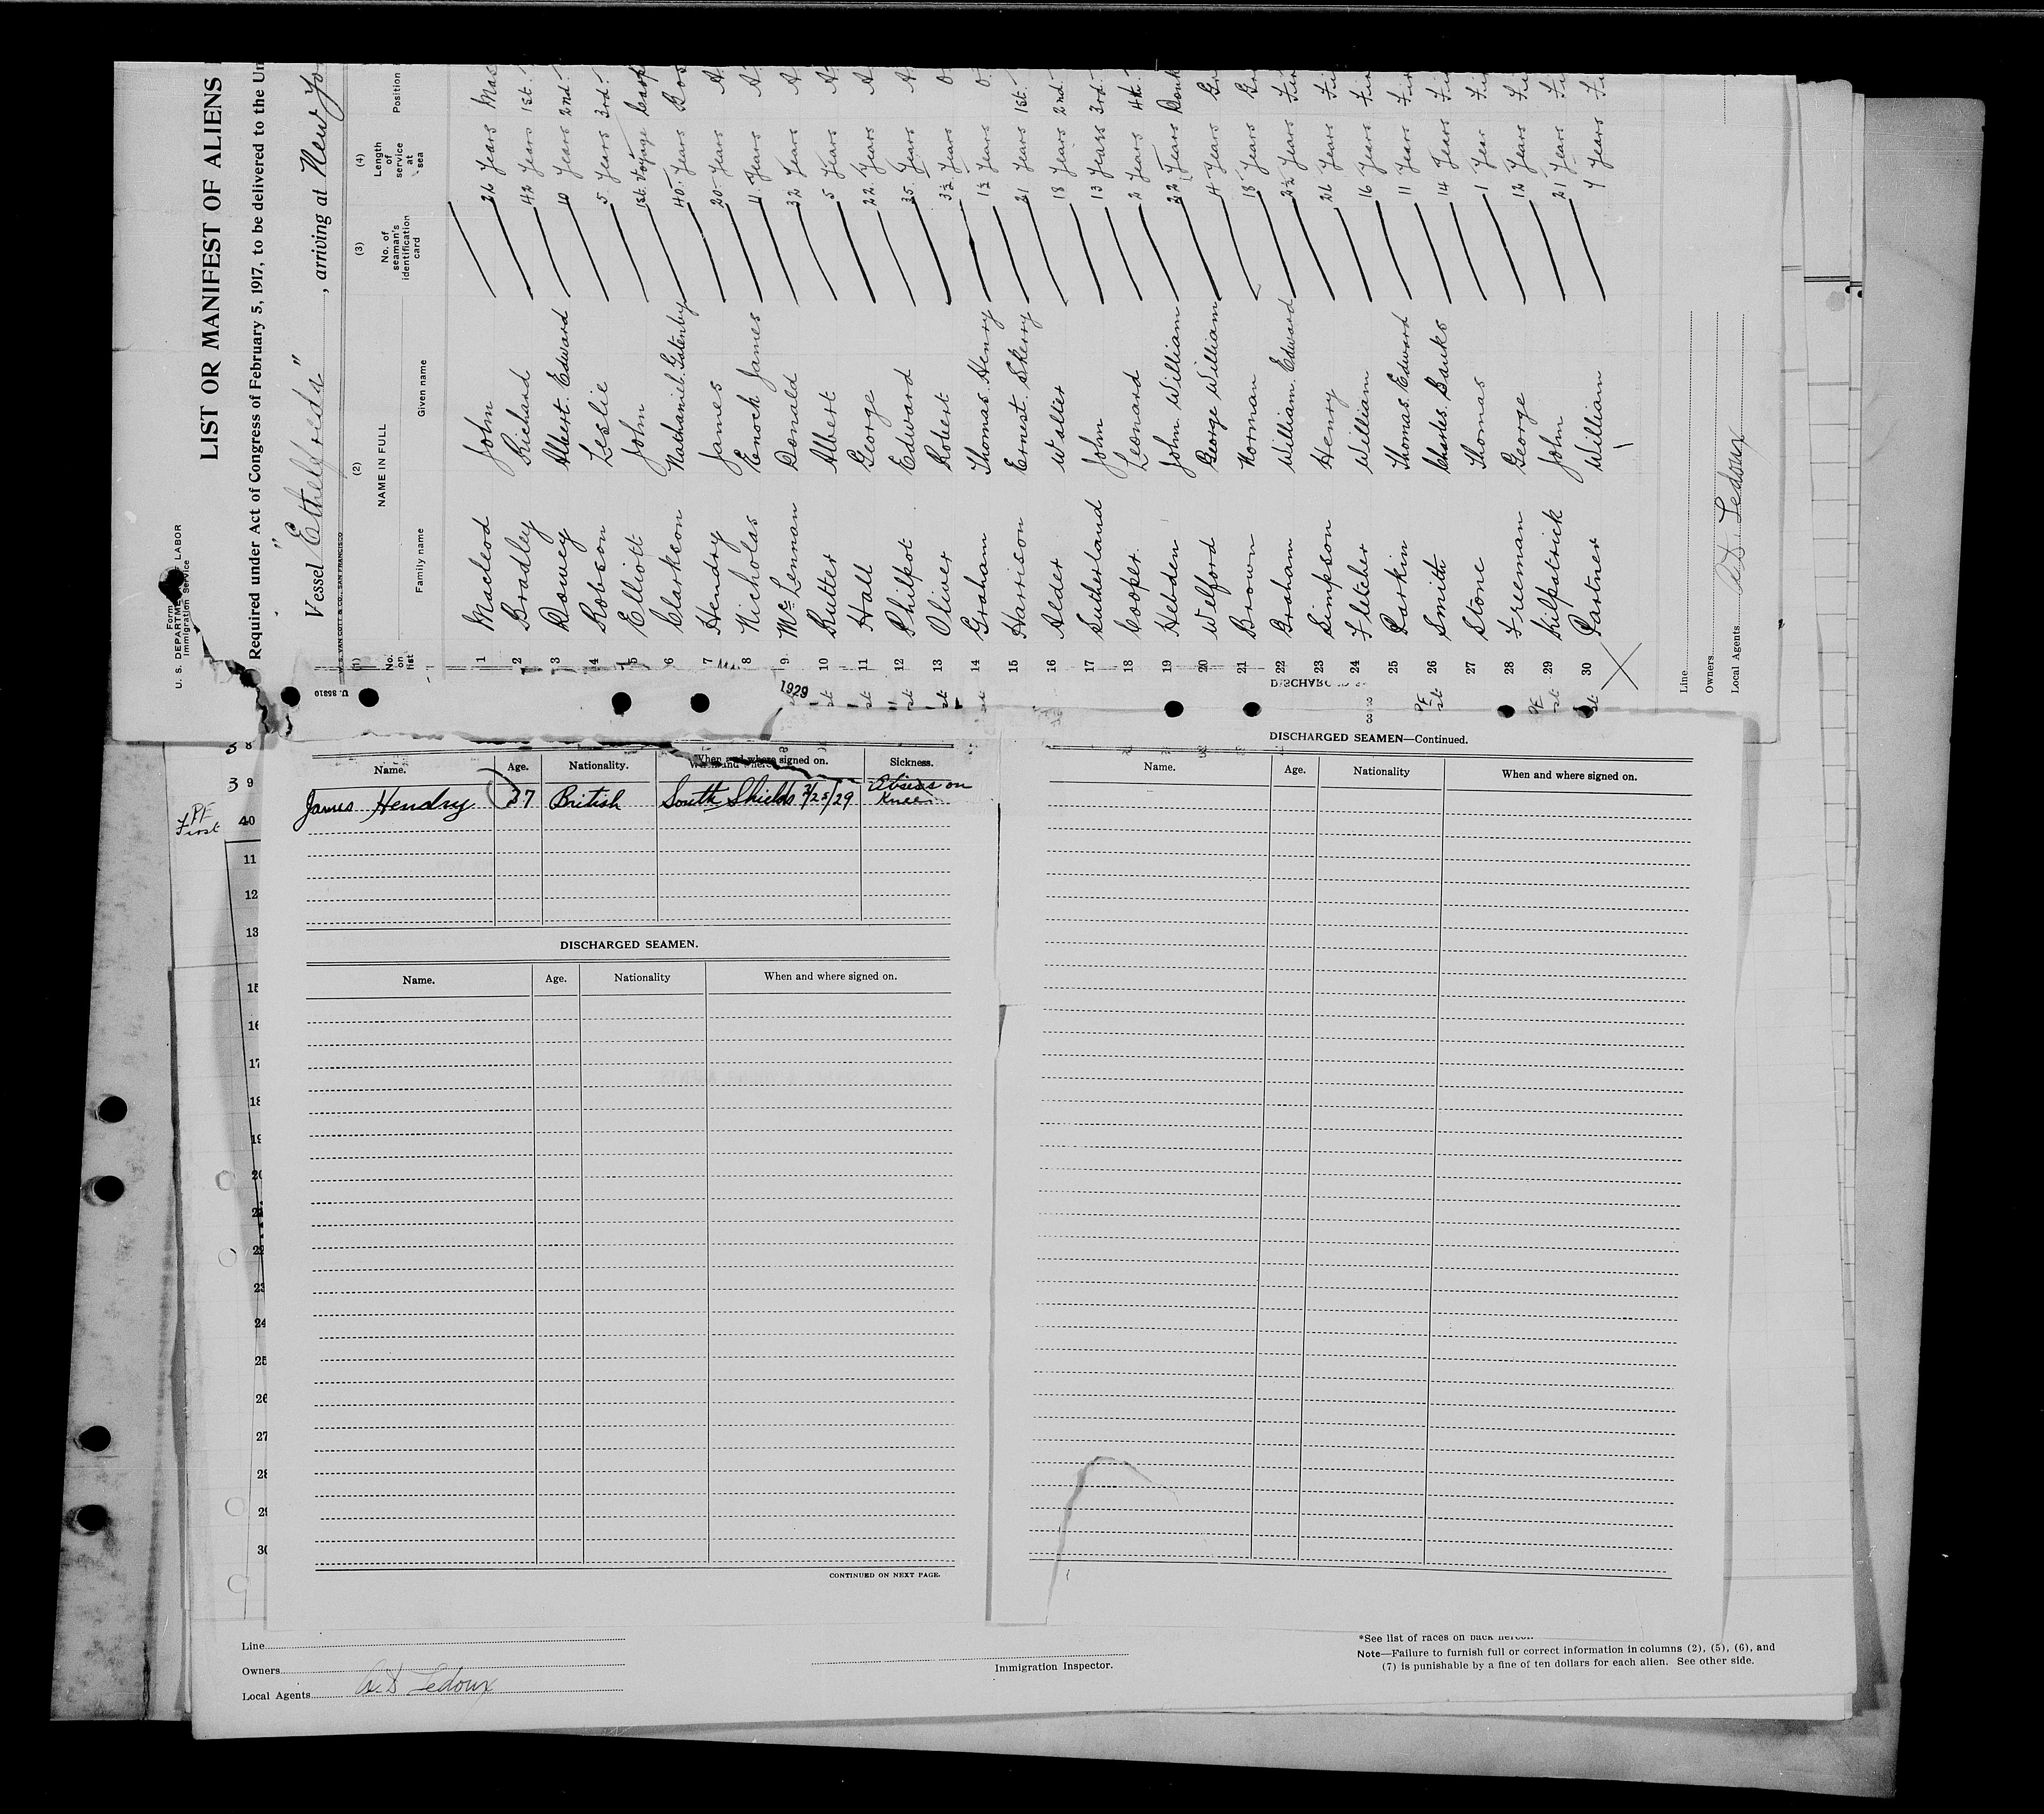 Form
U. S. DEPARTMENT LABOR
Immigration Service
LIST OR MANIFEST OF ALIENS
Required under Act of Congress of February 5, 1917, to be delivered to the Un
Vessel "Ethelfreda", arriving at New Yo
(1) (2) (3) (4)
No. on list NAME IN FULL No. of seaman's identification card Length of service at sea Position
Family name Given name
1 Macleod John 26 Years Mas
2 Bradley Richard 42 Years 1st.
3 Downey Albert Edward 10 Years 2nd.
4 Robson Leslie 5 Years 3rd.
5 Elliott John 1st. Voyage
6 Clarkson Nathaniel Gatenby 40 Years Bos
7 Hendry James 20 Years A.
8 Nicholas Enoch James 11 Years A
9 McLennan Donald 32 Years A
10 Rutter Albert 5 Years A
11 Hall George 22 Years A
12 Philpot Edward 35 Years A
13 Oliver Robert 3½ Years O
14 Graham Thomas Henry 1½ Years O.
15 Harrison Ernest Skerry 21 Years 1st.
16 Alder Walter 18 Years 2nd.
17 Sutherland John 13 Years 3rd.
18 Cooper Leonard 2 Years 4th.
19 Hebden John William 22 Years Donk
20 Welford George William 4 Years Gr
21 Brown Norman 18 Years Gr
22 Graham William Edward 2½ Years Fir
23 Simpson Henry 26 Years Fir
24 Fletcher William 16 Years Fir
25 Parkin Thomas Edward 11 Years Fir
26 Smith Charles Banks 14 Years Fir
27 Stone Thomas 1 Year Fir
28 Freeman George 12 Years Fir
29 Kilpatrick John 21 Years Fir
30 Partner William 7 Years Fi
Line
Owners
Local Agents A.D. Ledoux
1929
Name. Age. Nationality. When and where signed on. Sickness.
James Hendry 37 British South Shields 2/25/29 Absess on Knee
DISCHARGED SEAMEN.
Name. Age. Nationality When and where signed on.
CONTINUED ON NEXT PAGE.
DISCHARGED SEAMEN—Continued.
Name. Age. Nationality When and where signed on.
38
39
PF
First 40
11
12
13
15
16
17
18
19
20
21
22
23
24
25
26
27
28
29
30
Line
Owners
Local Agents A.D Ledoux
Immigration Inspector.
*See list of races on back hereof.
Note—Failure to furnish full or correct information in columns (2), (5), (6), and
(7) is punishable by a fine of ten dollars for each alien. See other side.